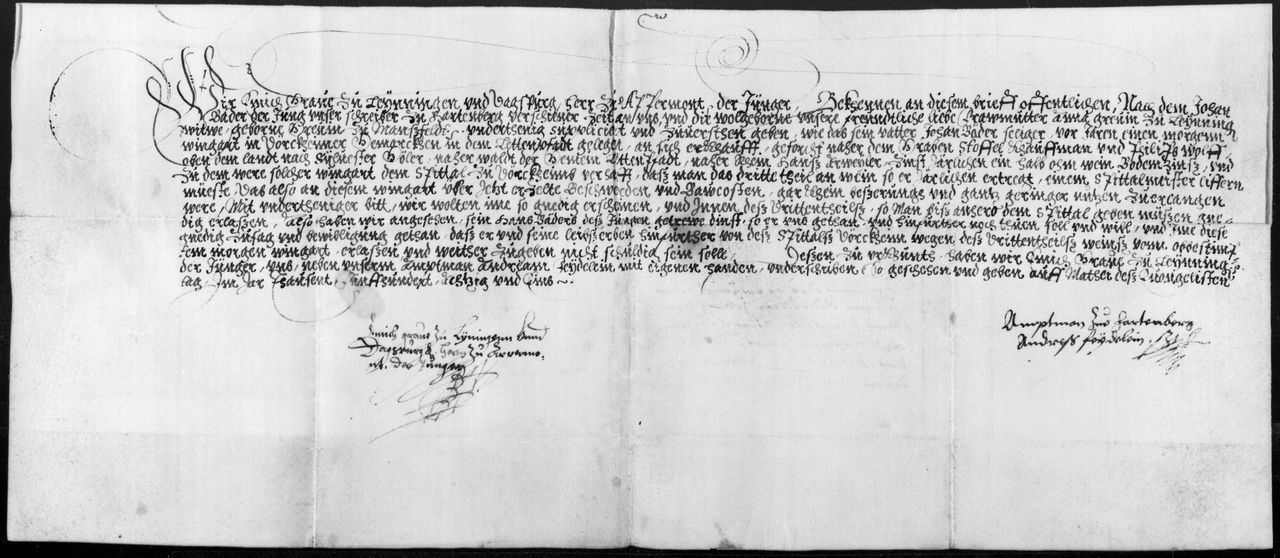 Wir Emich Graue zu Leyningen und Dagspurg, herr zu Aspermont, der Jünger, Bekennen an diesem brieff offentlichen, Nach dem Johan
Bader der Jung unser schreiber zu Hartenberg verschiener Zeit an uns, und die wolgeborne unsere freundtliche liebe Frawmutter, greuin zu Leyning
witwe, geborne Greuin zu Mansfeldt, underthenig supplicirt und zuuersthen geben, wie das sein vatter, Johan Bader seliger, vor jaren einen morgenn
wingart in Dorckheimer Gemarcken in dem Lettenstadt gelegen, an sich erkhaufft, geforcht naher dem Graben Stoffel Khauffman und Philips Wolff
oben dem landt nach Syluester Höler, naher waldt der Lettenstadt, naher Rhein Hanss, Zinst Järlichen ein halb ohm wein Bodem Zinss, und
In dem were solcher wingart dem Spittal zu Dorckheims verhafft, dass man das dritte theil an wein so er Järlichen ertregt, einem Spittalmeister liffern
müeste, Das also an diesem wingart uber Jetz erzelte beschwerden und Bawcosten, gar khein besserungs und gantz geringer nutzen zuerlangen
were, Mit undertheniger bitt, wir wolten ime so gnedig erscheinen, und Jnnen dess Dritten theilss, so Man biss anhero dem Spittal geben müessen gne-
dig erlassen, also haben wir angesehen, sein Hans Baders dess Jungen getrewe dinst, so er uns gethan, und hinfürther noch thun soll und will, und ime diese
gnedig zusag und bewilligung gethan, dass er und seine leibsserben hinfürther von dess Spittalss Dorckheim wegen, dess Drittentheilss weinss vonn obbestim-
tem morgen wingart, erlassen und weither zugeben nicht schuldig sein solle, Dessen zu urkhundt, haben wir Emich Graue zu Leyning
der Jünger, uns, neben unserm Amptman Andream mit eigenen handen, underschriben. So geschehen und geben auff Mathei dess Euangelisten
tag, im Jar Thausent, Funffhundert, Achtzig und Eins.
Emich graue zu Lyningenn unnd
Dagspurg, herr zu Apermo-
nt, der Junger
Amptman zuo Hartenberg
Andreß